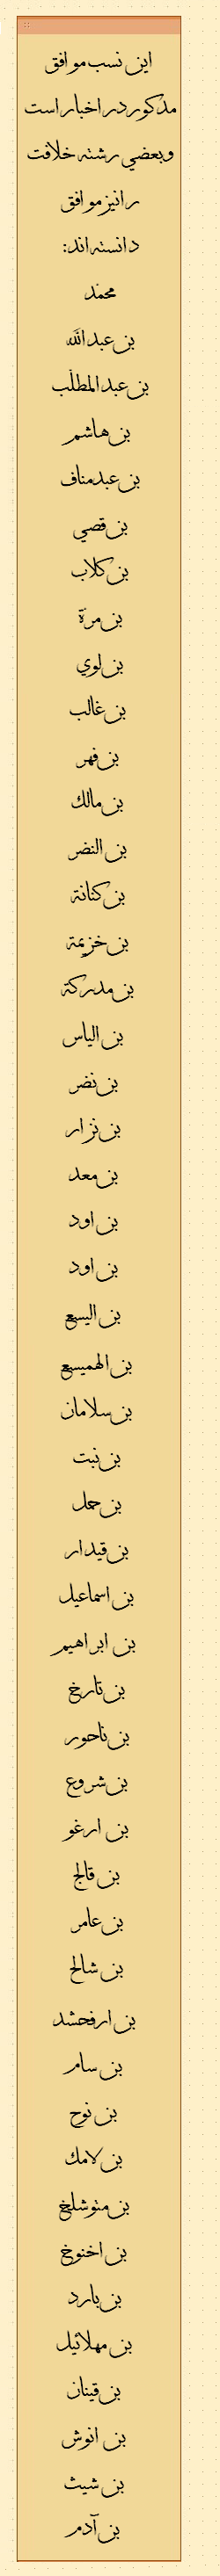 این نسب موافق
مذکور در اخبار است
وبعضي رشته خلافت
را نیز موافق
دانسته اند:
محمد
بن عبدالله
بن عبدالمطلب
بن هاشم
بن عبدمناف
بن قصي
بن كلاب
بن مرة
بن لوي
بن غالب
بن فهر
بن مالك
بن النضر
بن كنانة
بن خزيمة
بن مدركة
بن الياس
بن نضر
بن نزار
بن معد
بن اود
بن اود
بن اليسع
بن الهميسع
بن سلامان
بن نبت
بن حمل
بن قيدار
بن اسماعيل
بن ابراهيم
بن تارخ
بن ناحور
بن شروع
بن ارغو
بن قالج
بن عامر
بن شالح
بن ارفحشد
بن سام
بن نوح
بن لامك
بن متوشلخ
بن اخنوخ
بن بارد
بن مهلائيل
بن قينان
بن انوش
بن شيث
بن آدم